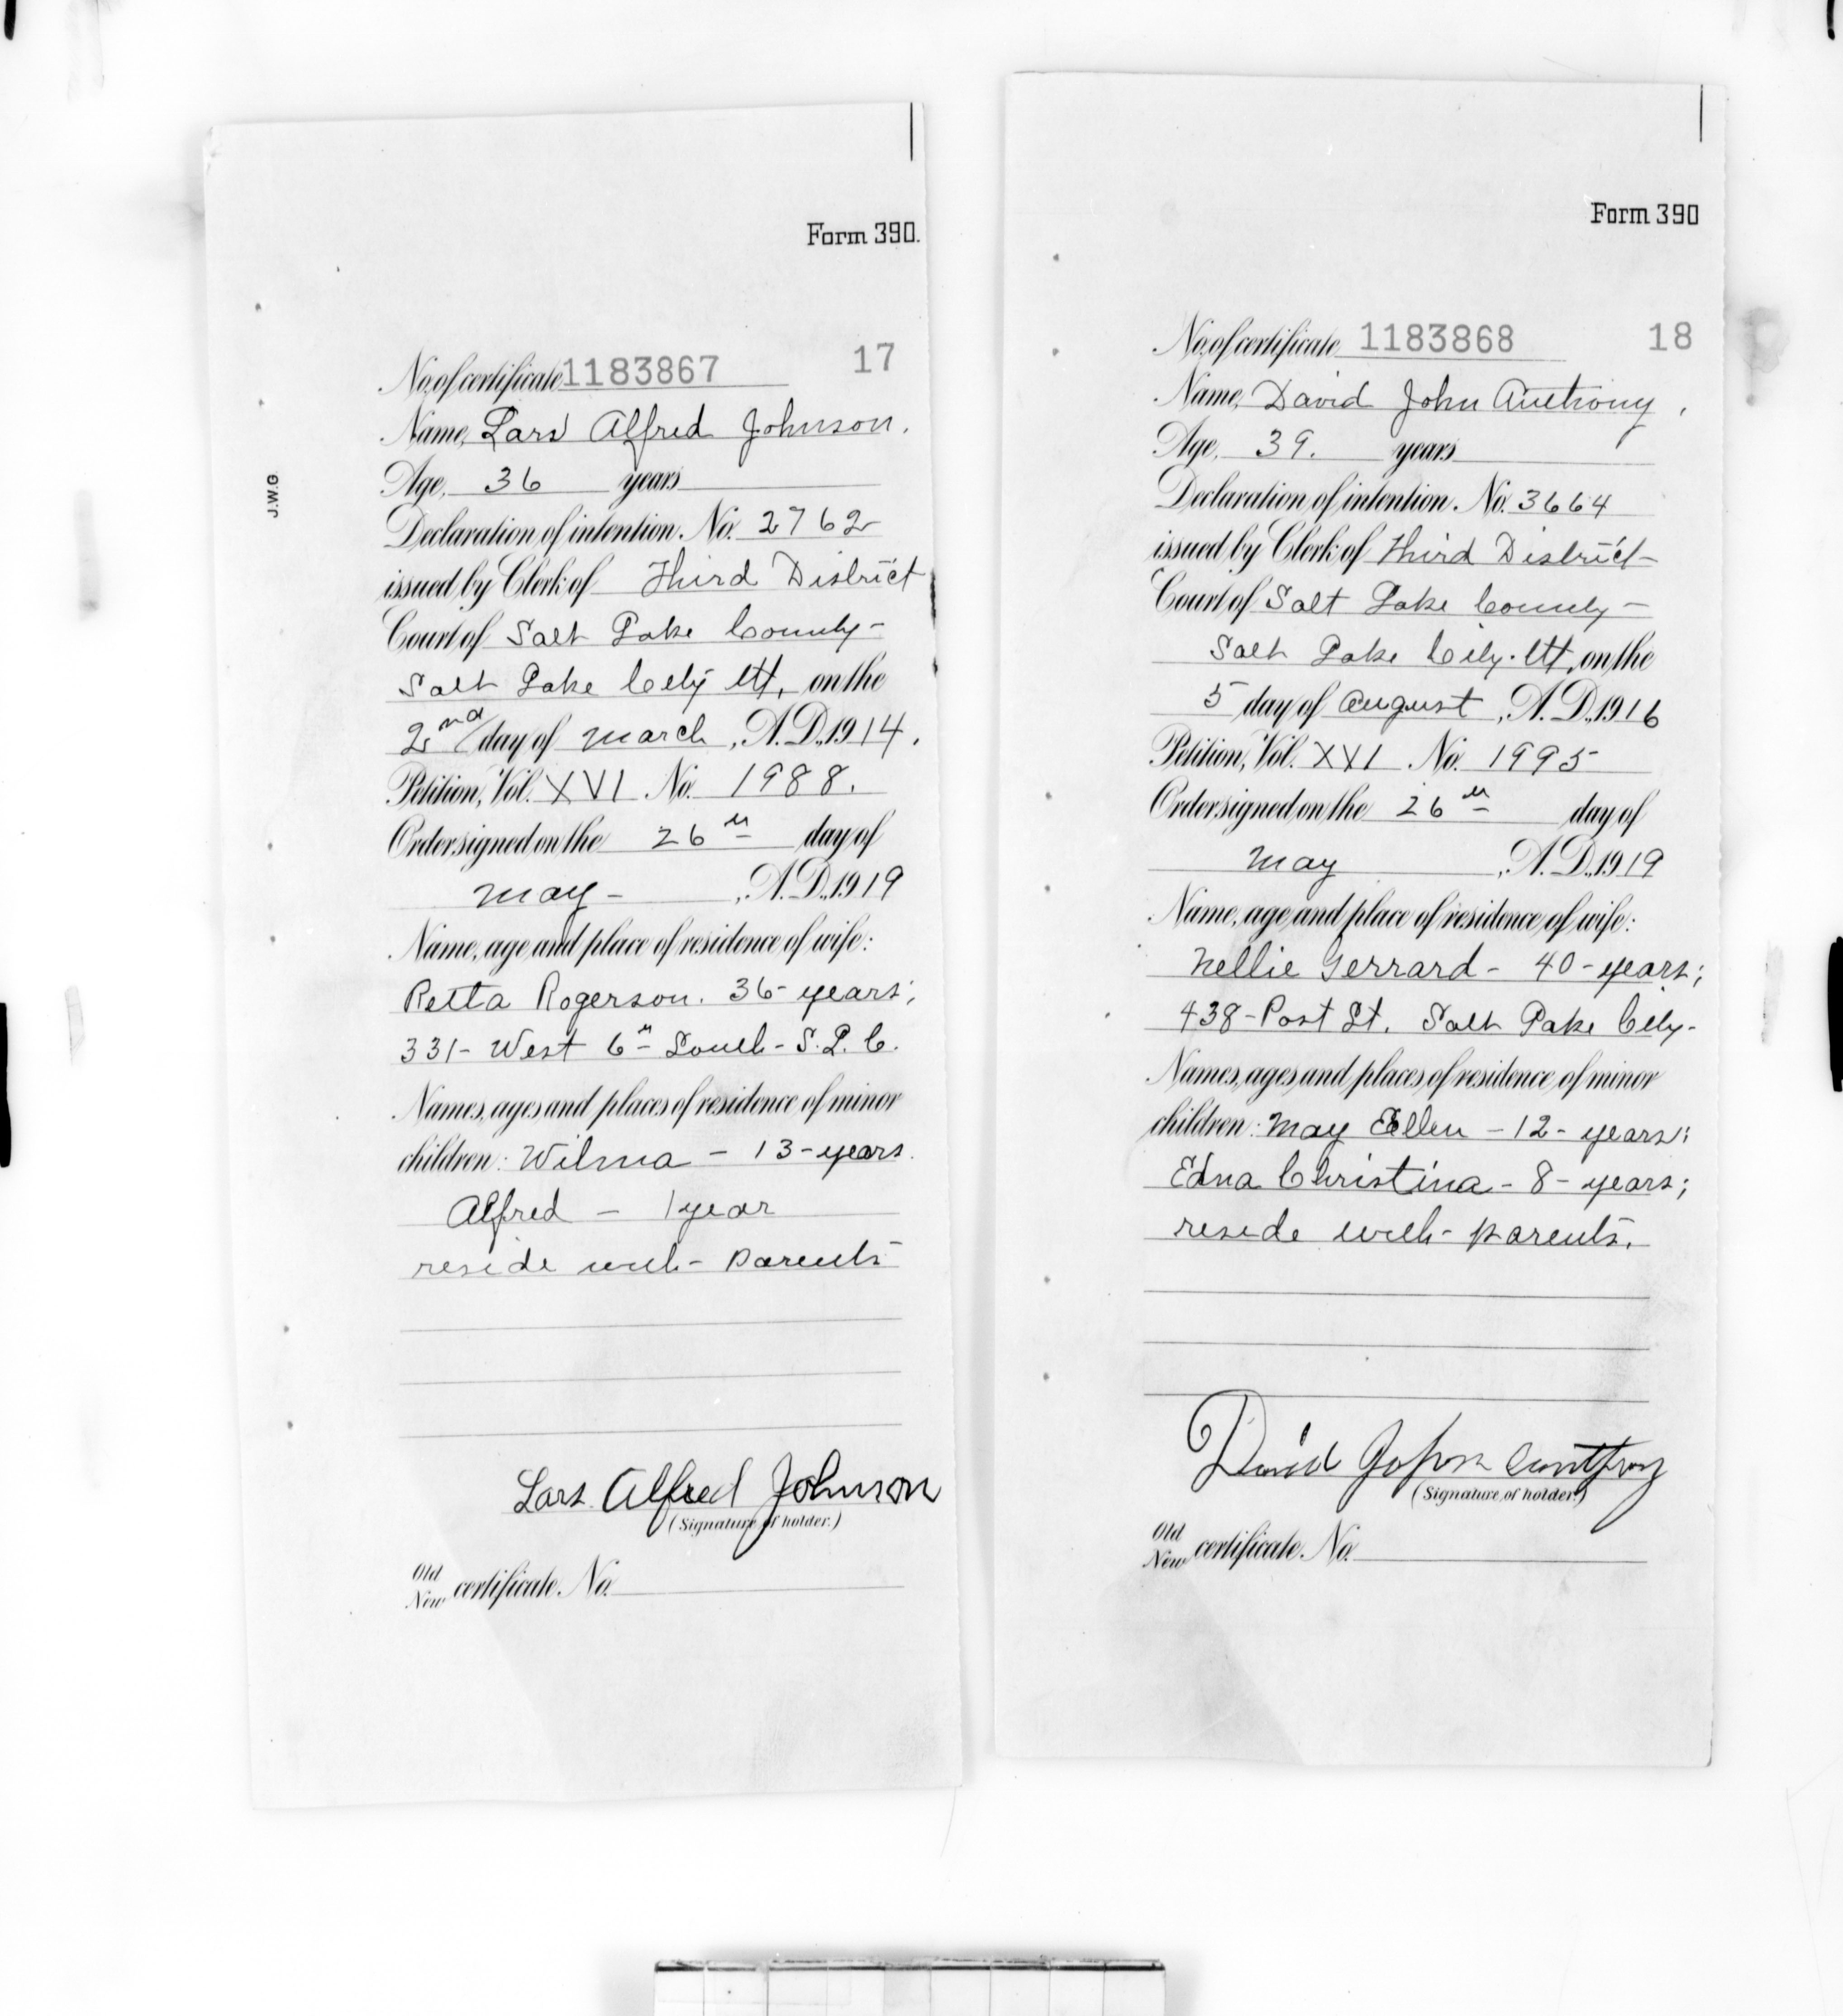 J.W.G.
Form 390.
17
No. of certificate 1183867
Name, Lars Alfred Johnson.
Age, 36 years
Declaration of intention. No. 2762
issued by Clerk of Third District
Court of Salt Lake County-
Salt Lake City Ut, on the
2nd day of March, A.D., 1914.
Petition, Vol. XVI No. 1988.
Order signed on the 26th day of
May-, A.D., 1919
Name, age and place of residence of wife:
Retta Rogerson. 36- years;
331- West 6th South- S.L.C.
Names, ages and places of residence of minor
children: Wilma - 13-years.
Alfred - 1 year
reside with- parents
Lars Alfred Johnson
(Signature of holder.)
Old
New certificate. No.
Form 390
18
No. of certificate 1183868
Name, David John Anthony,
Age, 39. years
Declaration of intention. No. 3664
issued by Clerk of Third District-
Court of Salt Lake County-
Salt Lake City. Ut, on the
5 day of August, A.D., 1916
Petition, Vol. XVI No. 1995
Order signed on the 26th day of
May, A.D., 1919
Name, age and place of residence of wife:
Nellie Gerrard- 40-years;
438-Post St. Salt Lake City-
Names, ages and places of residence of minor
children: May Ellen -12- years;
Edna Christina- 8- years;
reside with- parents.
David John Anthony
(Signature of holder.)
Old
New certificate. No.